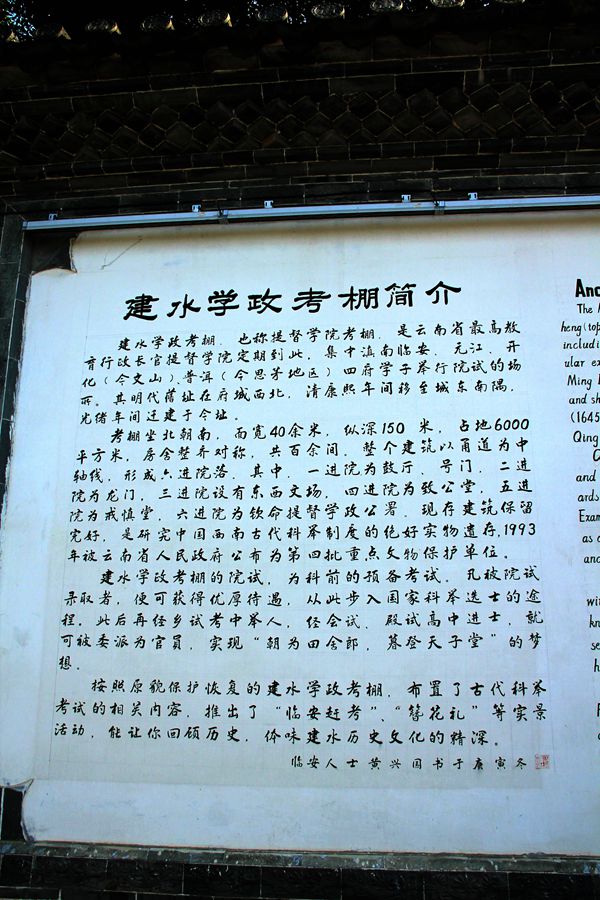 建水学政考棚简介
建水学政考棚，也称提督学院考棚，是云南省最高教
育行政长官提督学院定期到此，集中滇南临安、元江、开
化（今文山）、普洱（今思茅地区）四府学子举行院试的场
所。其明代旧址在府城西北，清康熙年间移至城东南隅，
光绪年间迁建于今址。
考棚坐北朝南，面宽40余米，纵深150米，占地6000
平方米，房舍整齐对称，共百余间，整个建筑以甬道为中
轴线，形成六进院落，其中，一进院为鼓厅、号门，二进
院为龙门，三进院设有东西文场，四进院为致公堂，五进
院为戒慎堂，六进院为钦命提督学政公署，现存建筑保留
完好，是研究中国西南古代科举制度的绝好实物遗存，1993
年被云南省人民政府公布为第四批重点文物保护单位。
建水学政考棚的院试，为科前的预备考试，凡被院试
录取者，便可获得优厚待遇，从此步入国家科举选士的途
程，此后再经乡试考中举人，经会试、殿试高中进士，就
可被委派为官员，实现“朝为田舍郎，暮登天子堂”的梦
想。
按照原貌保护恢复的建水学政考棚，布置了古代科举
考试的相关内容，推出了“临安赶考”、“簪花礼”等实景
活动，能让你回顾历史，体味建水历史文化的精深。
临安人士黄兴国书于庚寅冬
Anc
The
heng(top
includi
ular ex
Ming
and sh
(1645
Qing
and
ards
Exam
as
and
win
kn
se
h